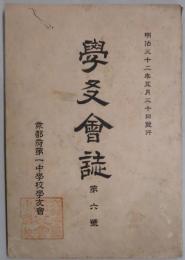 明治三十二年五月三十日發行
學友會誌
第六號
京都府第一中學校學友會